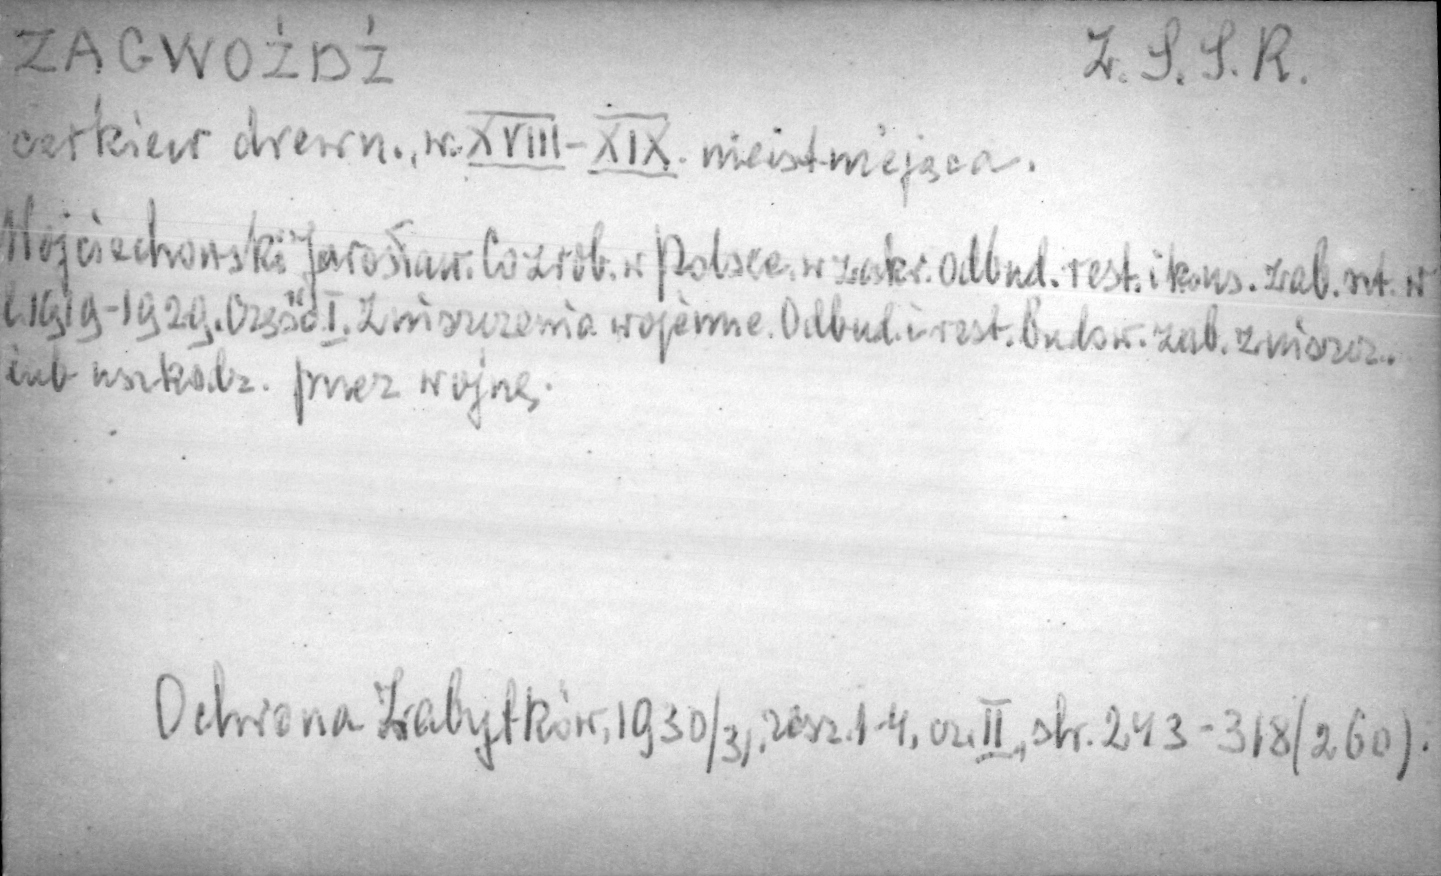 ZAGWOŹDŹ Z. S. S. R.
cerkiew drewn., w. XVIII-XIX. nieistniejąca.
Wojciechowski Jarosław. Co zrob. w Polsce. w zakr. odbud. rest. i kons. zab. szt. w
l. 1919-1929. Część I. Zniszczenia wojenne. Odbud. i rest. budow. zab. zniszcz.
lub uszkodz. przez wojnę.
Ochrona Zabytków, 1930/3/, zesz. 1-4, cz. II, str. 243-318 (260).